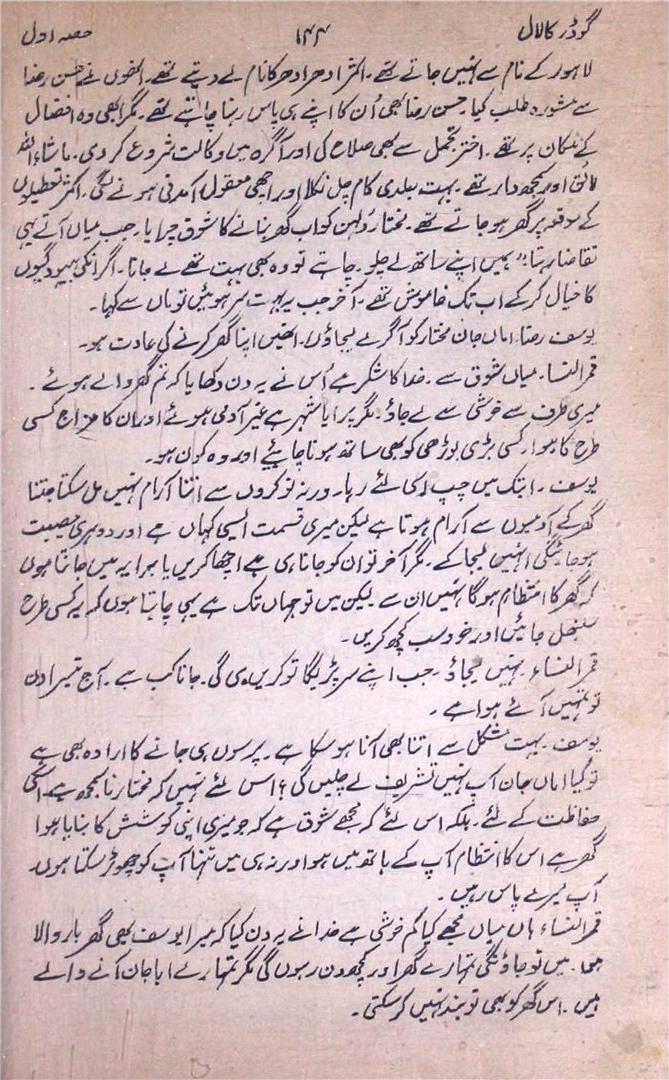 گوڈر کا لال ۱۴۴ حصہ اول
لاہور کے نام سے نہیں جاتے تھے۔ اکثر ادھر ادھر کا نام لے دیتے تھے۔ انھوں نے حسن رضا
سے مشورہ طلب کیا۔ حسن رضا بھی اُن کا اپنے ہی پاس رہنا چاہتے تھے۔ مگر ابھی وہ افضال
کے مکان پر تھے۔ اختر تجمل سے بھی صلاح کی اور آگرہ میں وکالت شروع کر دی۔ ماشاء اللہ
لائق اور سمجھ دار تھے۔ بہت جلدی کام چل نکلا اور اچھی معقول آمدنی ہونے لگی۔ اکثر تعطیلوں
کے موقعہ پر گھر ہو جاتے تھے۔ مختار دُلہن کو اب گھر بنانے کا شوق چرایا۔ جب میاں آتے یہی
تقاضا رہتا "ہمیں اپنے ساتھ لے چلو۔ چاہتے تو وہ بھی بہت تھے لے جانا۔ اگر انکی بیہودگیوں
کا خیال کر کے اب تک خاموش تھے۔ آخر جب یہ بہت سر ہوئیں تو ماں سے کہا۔
یوسف رضا۔ اماں جان مختار کو آگرے لیجاؤں۔ انھیں اپنا گھر کرنے کی عادت ہو۔
قمر النسا۔ میاں شوق سے۔ خدا کا شکر ہے اُس نے یہ دن دکھایا کہ تم گھر والے ہوئے۔
میری طرف سے خوشی سے لے جاؤ۔ مگر پرایا شہر ہے غیر آدمی ہوئے اور ان کا مزاج کسی
طرح کا ہوا۔ کسی بڑی بوڑھی کو بھی ساتھ ہونا چاہئے اور وہ کون ہو۔
یوسف۔ ابتک میں چپ اسی لئے رہا۔ ورنہ نوکروں سے اتنا آرام نہیں مل سکتا جتنا
گھر کے آدمیوں سے آرام ہوتا ہے لیکن میری قسمت ایسی کہاں ہے اور دوہری مصیبت
ہو جائیگی انہیں لیجا کے۔ مگر آخر تو ان کو جانا ہی ہے اچھا کریں یا برا یہ میں جانتا ہوں
کہ گھر کا انتظام ہوگا نہیں ان سے لیکن میں تو جہاں تک ہے یہی چاہتا ہوں کہ یہ کسی طرح
سنبھل جائیں اور خود سب کچھ کریں۔
قمر النساء۔ نہیں لیجاؤ۔ جب اپنے سر پڑیگا تو کریں ہی گی۔ جانا کب سے۔ آج تیسرا دن
تو تمہیں آئے ہوا ہے۔
یوسف۔ بہت مشکل سے اتنا بھی آنا ہو سکا ہے۔ پرسوں ہی جانے کا ارادہ بھی ہے
تو کیا اماں جان آپ نہیں تشریف لے چلیں گی؟ اس لئے نہیں کہ مختار ناسمجھ ہے۔ اسکی
حفاظت کے لئے۔ بلکہ اس لئے کہ مجھے شوق ہے کہ جو میری اپنی کوشش کا بنایا ہوا
گھر ہے اس کا انتظام آپ کے ہاتھ میں ہو اور نہ ہی میں تنہا آپ کو چھوڑ سکتا ہوں۔
آپ میرے پاس رہیں۔
قمر النساء ہاں میاں مجھے کیا کم خوشی ہے خدا نے یہ دن کیا کہ میرا یوسف بھی گھر بار والا
ہوا۔ میں تو جاؤنگی تمہارے گھر اور کچھ دن رہوں گی مگر تمہارے ابا جان آنے والے
ہیں۔ اس گھر کو بھی تو بند نہیں کر سکتی۔